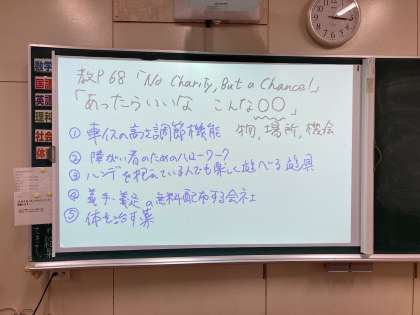 教P68「No Charity, But a Chance!」
「あったらいいな こんな○○」
物,場所,機会
① 車イスの高さ調節機能
② 障がい者のためのハローワーク
③ ハンデを抱えている人でも楽しく遊べる遊具
④ 義手・義足の無料配布する会社
⑤ 体を治す薬
数学
国語
英語
理科
社会